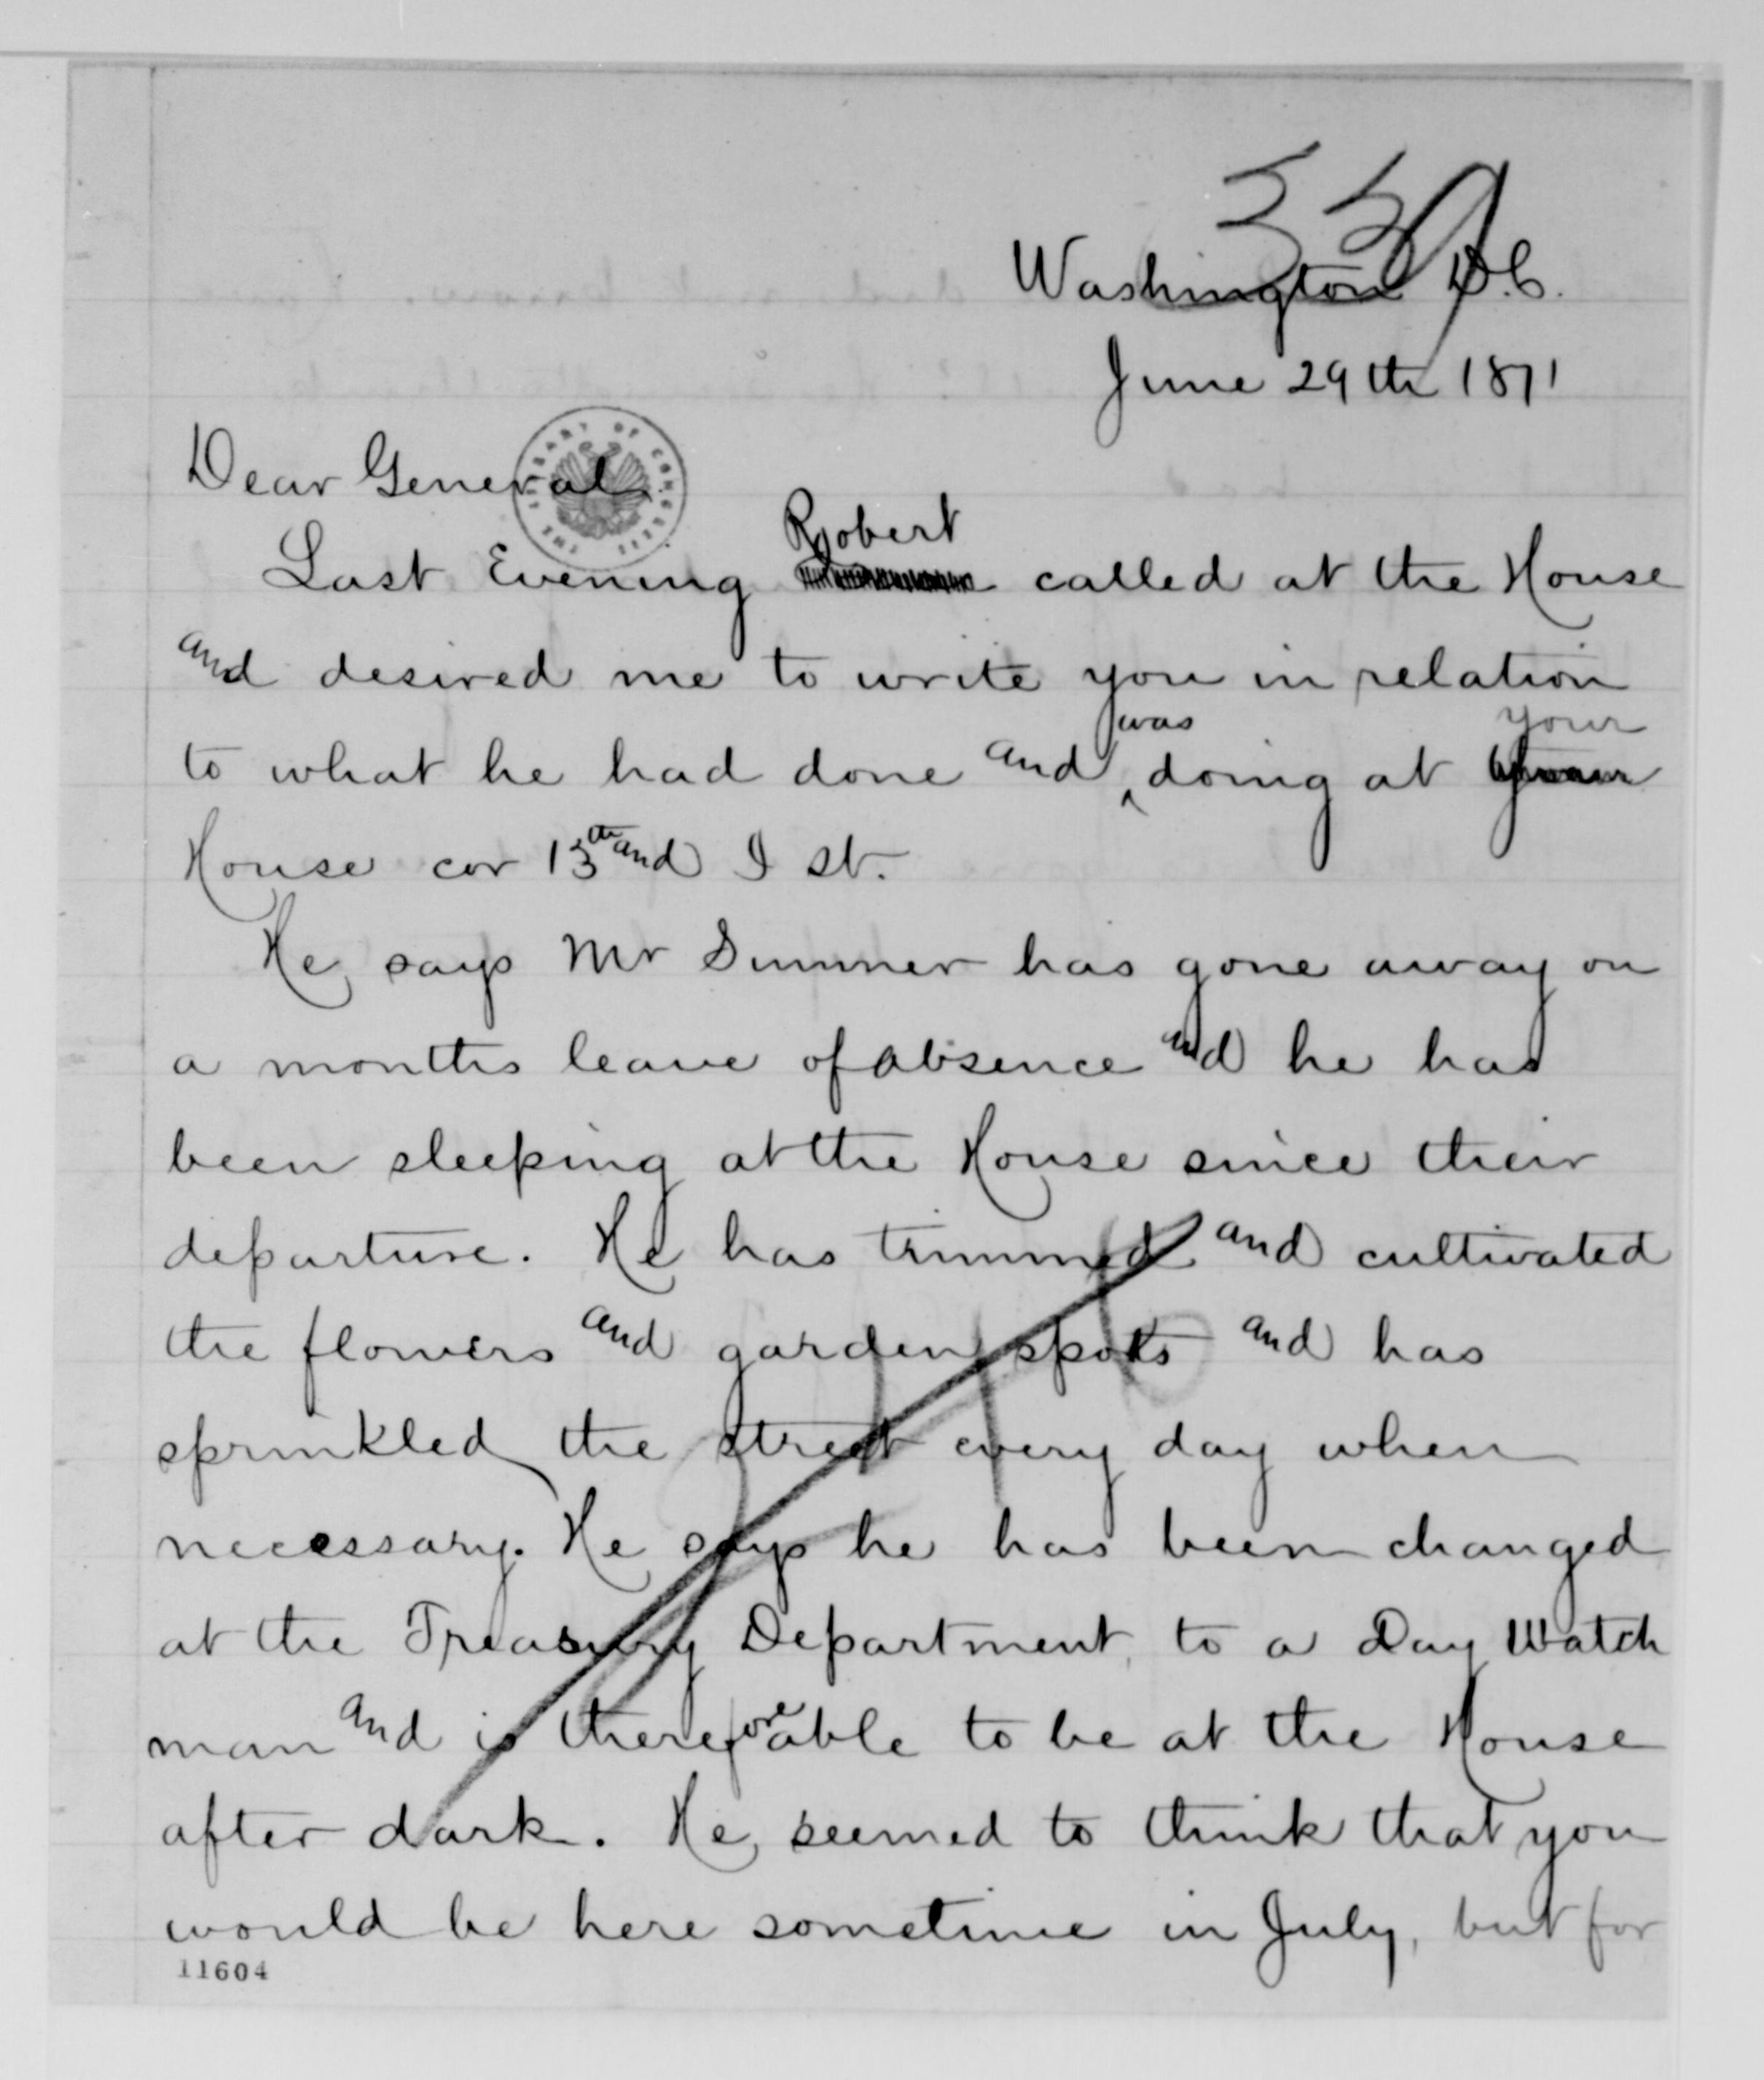 339
Washington D.C.
June 29th 1871
Dear General
Last Evening Robert called at the House
and desired me to write you in relation
to what he had done and was doing at your
House cor 13th and I st.
He says Mr Sumner has gone away on
a months leave of absence and he has
been sleeping at the House since their
departure. He has trimmed and cultivated
the flowers and garden spots and has
sprinkled the street every day when
necessary. He says he has been changed
at the Treasury Department, to a Day Watch
man and is therefore able to be at the House
after dark. He seemed to think that you
would be here sometime in July, but for
11604